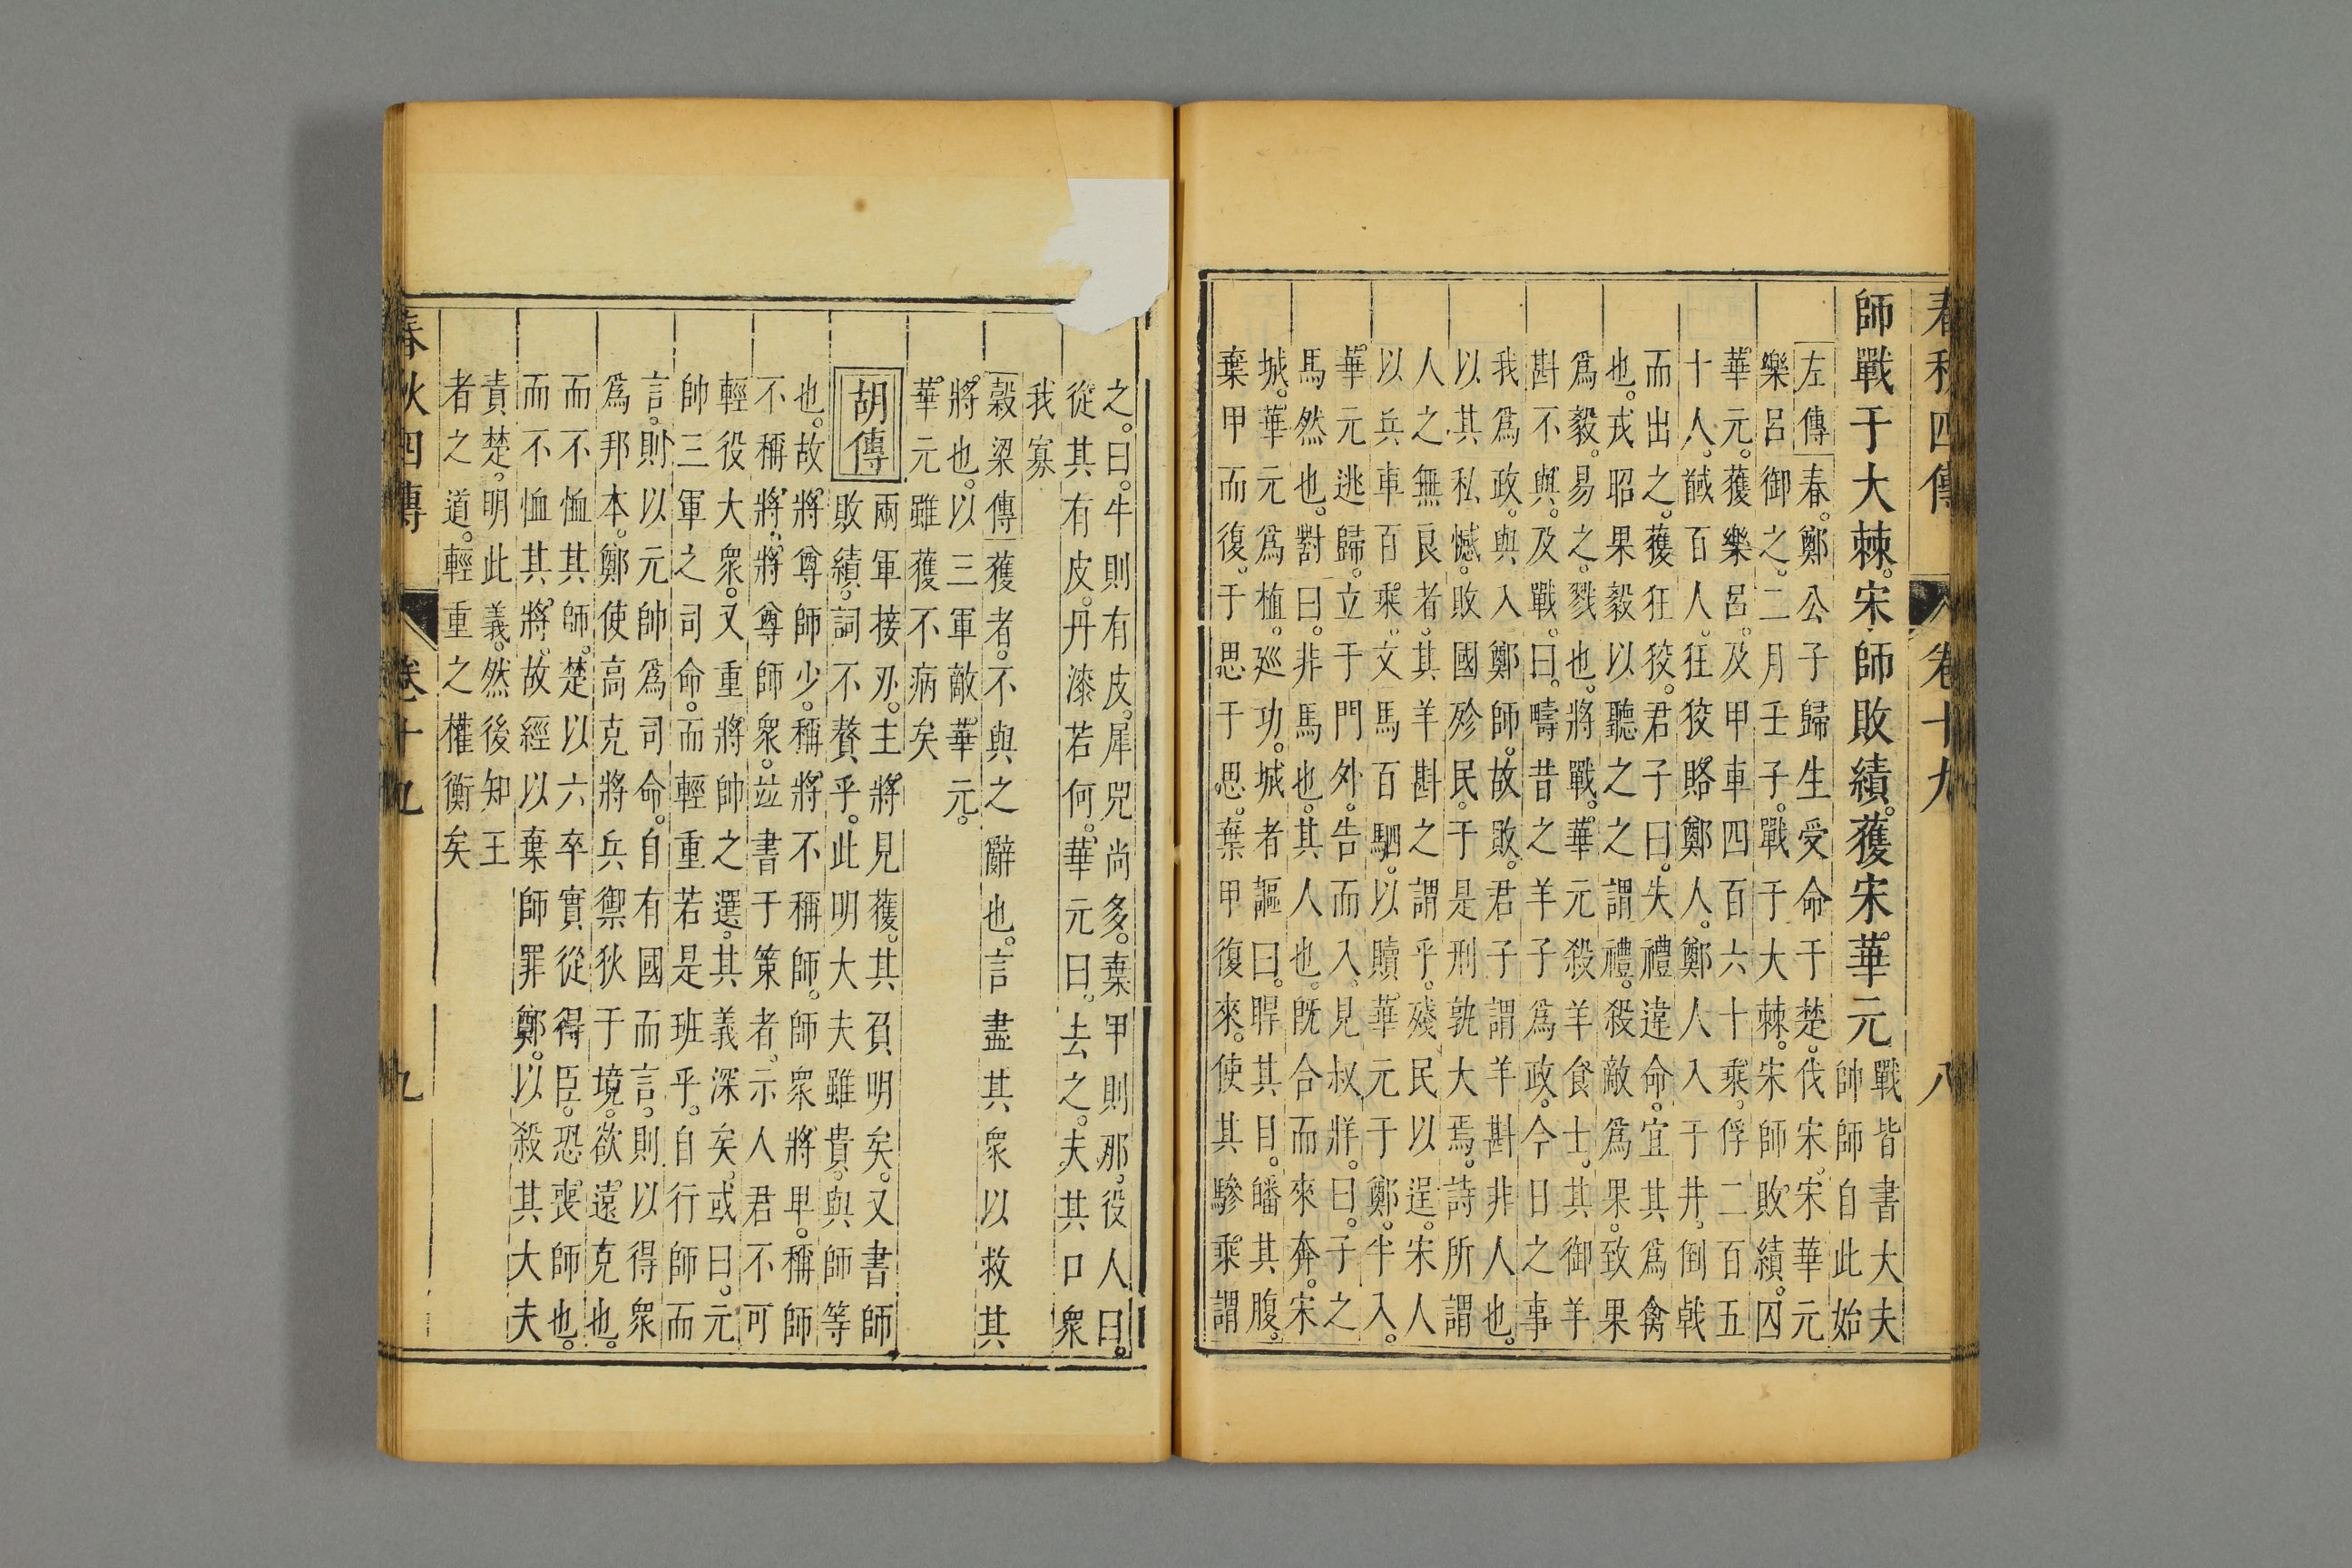 春秋四傳 卷十九 八
師戰于大棘。宋師敗績。獲宋華元
戰皆書大夫
帥師自此始
左傳春。鄭公子歸生受命于楚。伐宋。宋華元
樂呂御之。二月壬子。戰于大棘。宋師敗績。囚
華元。獲樂呂。及甲車四百六十乘。俘二百五
十人。馘百人。狂狡輅鄭人。鄭人入于井。倒戟
而出之。獲狂狡。君子曰。失禮違命。宜其爲禽
也。戎昭果毅以聽之之謂禮。殺敵爲果。致果
爲毅。易之。戮也。將戰。華元殺羊食士。其御羊
斟不與。及戰。曰。疇昔之羊子爲政。今日之事
我爲政。與入鄭師。故敗。君子謂羊斟非人也。
以其私憾。敗國殄民。于是刑孰大焉。詩所謂
人之無良者。其羊斟之謂乎。殘民以逞。宋人
以兵車百乘。文馬百駟。以贖華元于鄭。半入。
華元逃歸。立于門外。告而入。見叔牂。曰。子之
馬然也。對曰。非馬也。其人也。既合而來奔。宋
城。華元爲植。巡功。城者謳曰。睅其目。皤其腹。
棄甲而復。于思于思。棄甲復來。使其驂乘謂
之。曰。牛則有皮。犀兕尚多。棄甲則那。役人曰。
從其有皮。丹漆若何。華元曰。去之。夫其口衆
我寡
穀梁傳獲者。不與之辭也。言盡其衆以救其
將也。以三軍敵華元。
華元雖獲不病矣
胡傳
兩軍接刃。主將見獲。其負明矣。又書師
敗績。詞不贅乎。此明大夫雖貴。與師等
也。故將尊師少。稱將不稱師。師衆將卑。稱師
不稱將。將尊師衆。竝書于策者。示人君不可
輕役大衆。又重將帥之選。其義深矣。或曰。元
帥三軍之司命。而輕重若是班乎。自行師而
言。則以元帥爲司命。自有國而言。則以得衆
爲邦本。鄭使高克將兵禦狄于境。欲遠克也。
而不恤其師。楚以六卒實從得臣。恐喪師也。
而不恤其將。故經以棄師罪鄭。以殺其大夫
責楚。明此義。然後知王
者之道。輕重之權衡矣
春秋四傳 卷十九 九